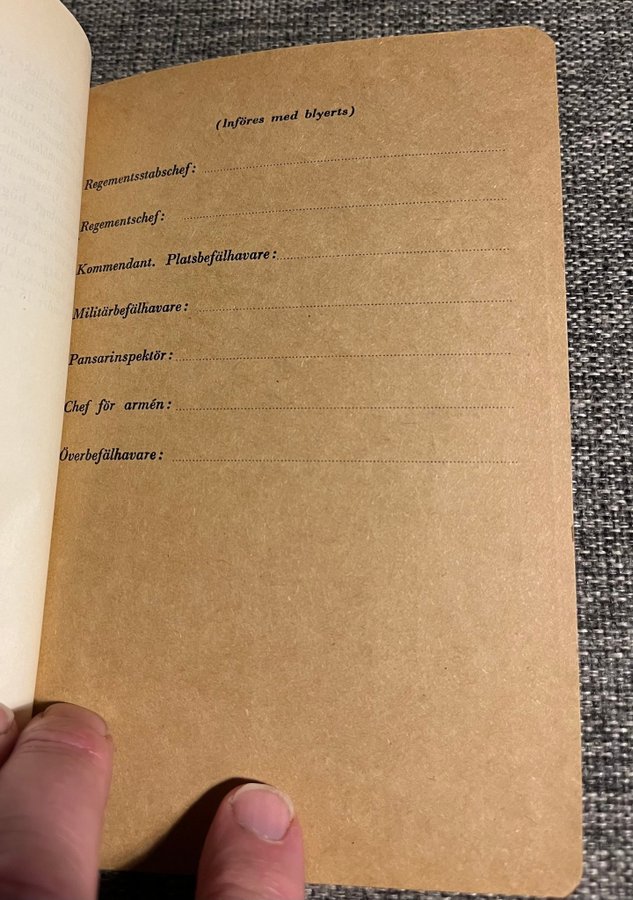 (Införes med blyerts)
Regementsstabschef:
Regementschef:
Kommendant. Platsbefälhavare:
Militärbefälhavare:
Pansarinspektör:
Chef för armén:
Överbefälhavare: